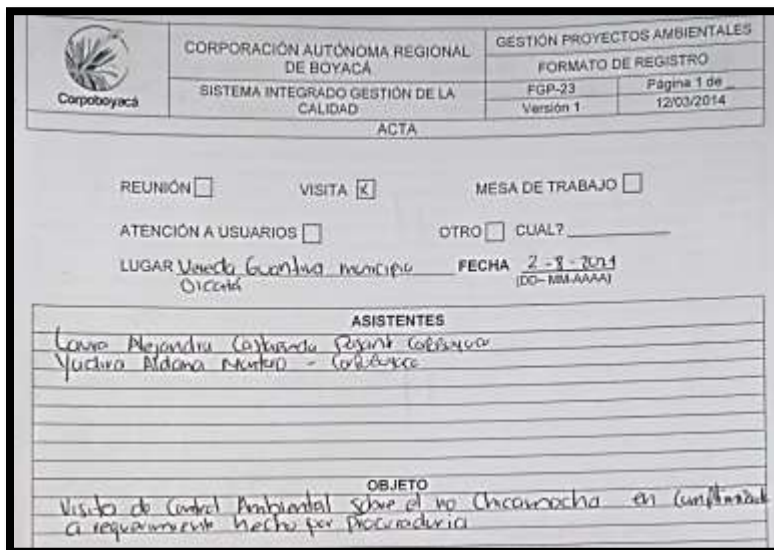 Corpoboyacá
CORPORACIÓN AUTÓNOMA REGIONAL DE BOYACÁ
SISTEMA INTEGRADO GESTIÓN DE LA CALIDAD
GESTIÓN PROYECTOS AMBIENTALES
FORMATO DE REGISTRO
FGP-23 Página 1 de _
Versión 1 12/03/2014
ACTA
REUNIÓN VISITA X MESA DE TRABAJO
ATENCIÓN A USUARIOS OTRO CUAL?
LUGAR Vereda municipio FECHA 2-8-2021
(DD-MM-AAAA)
ASISTENTES
Laura Alejandra Castañeda Corpoboyacá
Aldana - Corpoboyacá
OBJETO
Visita de Control Ambiental sobre el rio Chicamocha en
a requerimiento hecho por Procuraduria